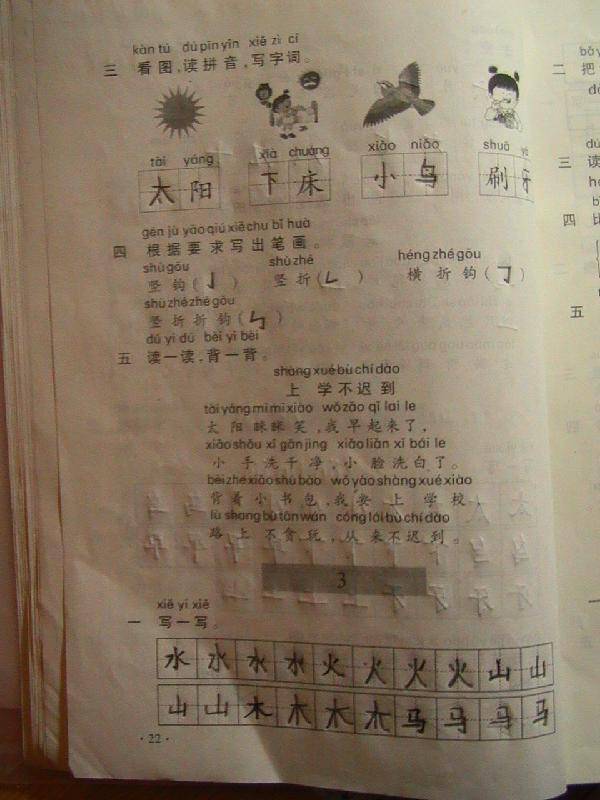 kàn tú dú pīn yīn xiě zì cí
三 看图,读拼音,写字词。
tài yáng xià chuáng xiǎo niǎo shuā yá
太阳 下床 小鸟 刷牙
gēn jù yāo qiú xiě chu bǐ huà
四 根据要求写出笔画。
shù gōu shù zhé héng zhé gōu
竖钩(亅) 竖折(𠃊) 横折钩(𠃌)
shù zhé zhé gōu
竖折折钩(㇉)
dú yi dú bèi yi bèi
五 读一读,背一背。
shàng xué bù chí dào
上学不迟到
tài yáng mī mī xiào wǒ zǎo qǐ lai le
太阳眯眯笑,我早起来了,
xiǎo shǒu xǐ gān jìng xiǎo liǎn xǐ bái le
小手洗干净,小脸洗白了。
bēi zhe xiǎo shū bāo wǒ yào shàng xué xiào
背着小书包,我要上学校,
lù shang bù tān wán cóng lái bù chí dào
路上不贪玩,从来不迟到。
3
xiě yi xiě
一 写一写。
水水水水火火火火山山
山山木木木木马马马马
·22·
二 把
三 读
四 比
五